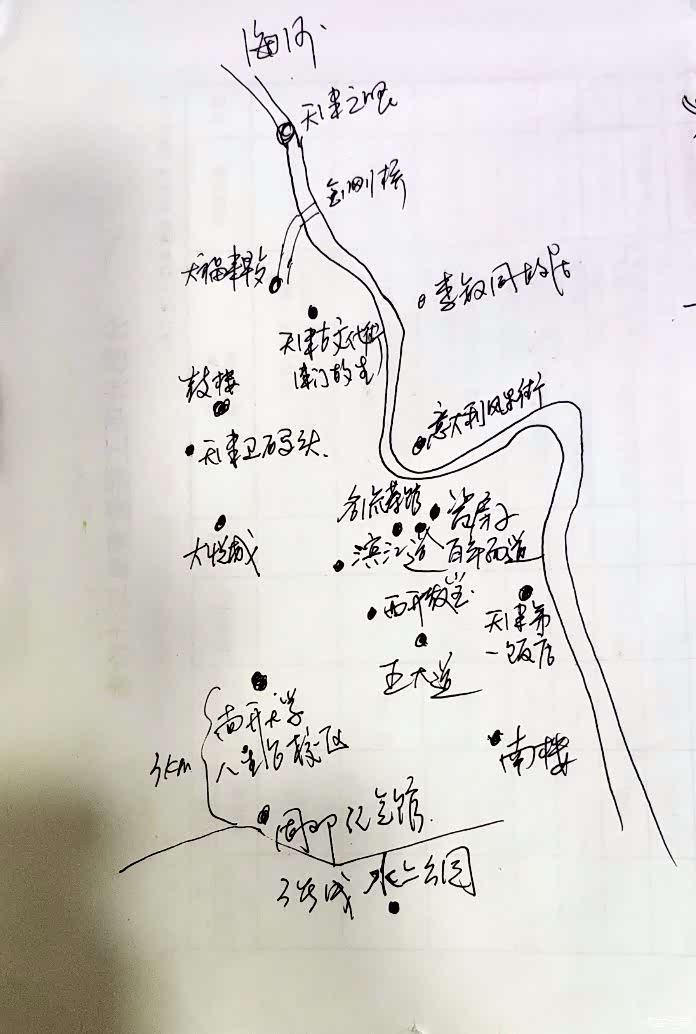 海河
天津之眼
金刚桥
李叔同故居
天津古文化街
鼓楼
天津卫码头
意大利风景街
名流茶馆
瓷房子
滨江道
百年西道
大悦城
西开教堂
天津第
一饭店
五大道
南开大学
八里台校区
3km
南楼
周邓纪念馆
水上公园